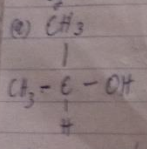 (a) CH3
|
CH3 - C - OH
|
H